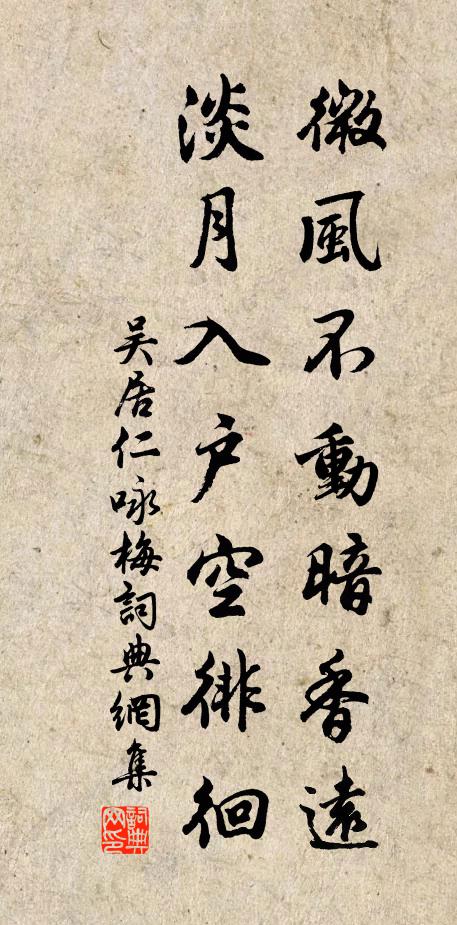 微風不動暗香遠
淡月入户空徘徊
吴居仁咏梅詞典網集
詞典網印